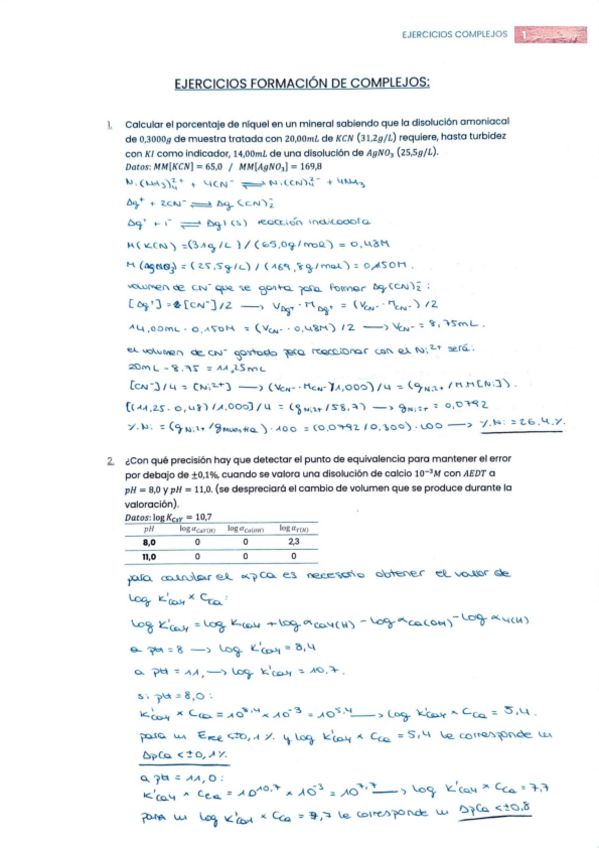 EJERCICIOS COMPLEJOS 1
EJERCICIOS FORMACIÓN DE COMPLEJOS:
1. Calcular el porcentaje de níquel en un mineral sabiendo que la disolución amoniacal
de 0,3000g de muestra tratada con 20,00mL de KCN (31,2g/L) requiere, hasta turbidez
con KI como indicador, 14,00mL de una disolución de AgNO₃ (25,5g/L).
Datos: MM[KCN] = 65,0 / MM[AgNO₃] = 169,8
Ni(NH₃)₄²⁺ + 4CN⁻ ⇌ Ni(CN)₄²⁻ + 4NH₃
Ag⁺ + 2CN⁻ ⇌ Ag(CN)₂⁻
Ag⁺ + I⁻ ⇌ AgI(s) reacción indicadora
M(KCN) = (31g/L) / (65,0g/mol) = 0,48M
M(AgNO₃) = (25,5g/L) / (169,8g/mol) = 0,150M.
volumen de CN⁻ que se gasta para formar Ag(CN)₂⁻:
[Ag⁺] = [CN⁻]/2 → V_Ag⁺ · M_Ag⁺ = (V_CN⁻ · M_CN⁻)/2
14,00mL · 0,150M = (V_CN⁻ · 0,48M)/2 → V_CN⁻ = 8,75mL.
el volumen de CN⁻ gastado para reaccionar con el Ni²⁺ será:
20mL - 8,75 = 11,25mL
[CN⁻]/4 = [Ni²⁺] → (V_CN⁻ · M_CN⁻/1,000)/4 = (g_Ni²⁺/MM[Ni]).
[(11,25 · 0,48)/1,000]/4 = (g_Ni²⁺/58,7) → g_Ni²⁺ = 0,0792
%Ni = (g_Ni²⁺/g_muestra) · 100 = (0,0792/0,300) · 100 → %Ni = 26,4%
2. ¿Con qué precisión hay que detectar el punto de equivalencia para mantener el error
por debajo de ±0,1%, cuando se valora una disolución de calcio 10⁻³M con AEDT a
pH = 8,0 y pH = 11,0. (se despreciará el cambio de volumen que se produce durante la
valoración).
Datos: log K_CaY = 10,7
pH log α_CaY(H) log α_Ca(OH) log α_Y(H)
8,0 0 0 2,3
11,0 0 0 0
para calcular el ΔpCa es necesario obtener el valor de
log K'_CaY × C_Ca:
log K'_CaY = log K_CaY + log α_CaY(H) - log α_Ca(OH) - log α_Y(H)
a pH = 8 → log K'_CaY = 8,4
a pH = 11, → log K'_CaY = 10,7.
si pH = 8,0:
K'_CaY × C_Ca = 10⁸,⁴ × 10⁻³ = 10⁵,⁴ → log K'_CaY × C_Ca = 5,4.
para un E_rel <±0,1% y log K'_CaY × C_Ca = 5,4 le corresponde un
ΔpCa <±0,1%
a pH = 11,0:
K'_CaY × C_Ca = 10¹⁰,⁷ × 10⁻³ = 10⁷,⁷ → log K'_CaY × C_Ca = 7,7
para un log K'_CaY × C_Ca = 7,7 le corresponde un ΔpCa <±0,8